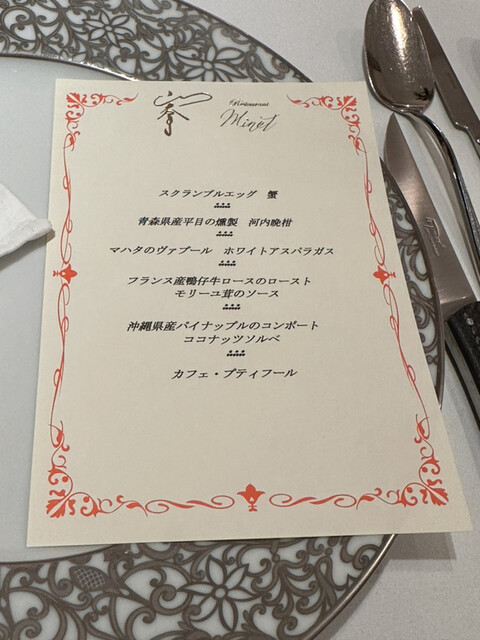 Restaurant
Minet
スクランブルエッグ 蟹
青森県産平目の燻製 河内晩柑
マハタのヴァプール ホワイトアスパラガス
フランス産鴨仔牛ロースのロースト
モリーユ茸のソース
沖縄県産パイナップルのコンポート
ココナッツソルベ
カフェ・プティフール